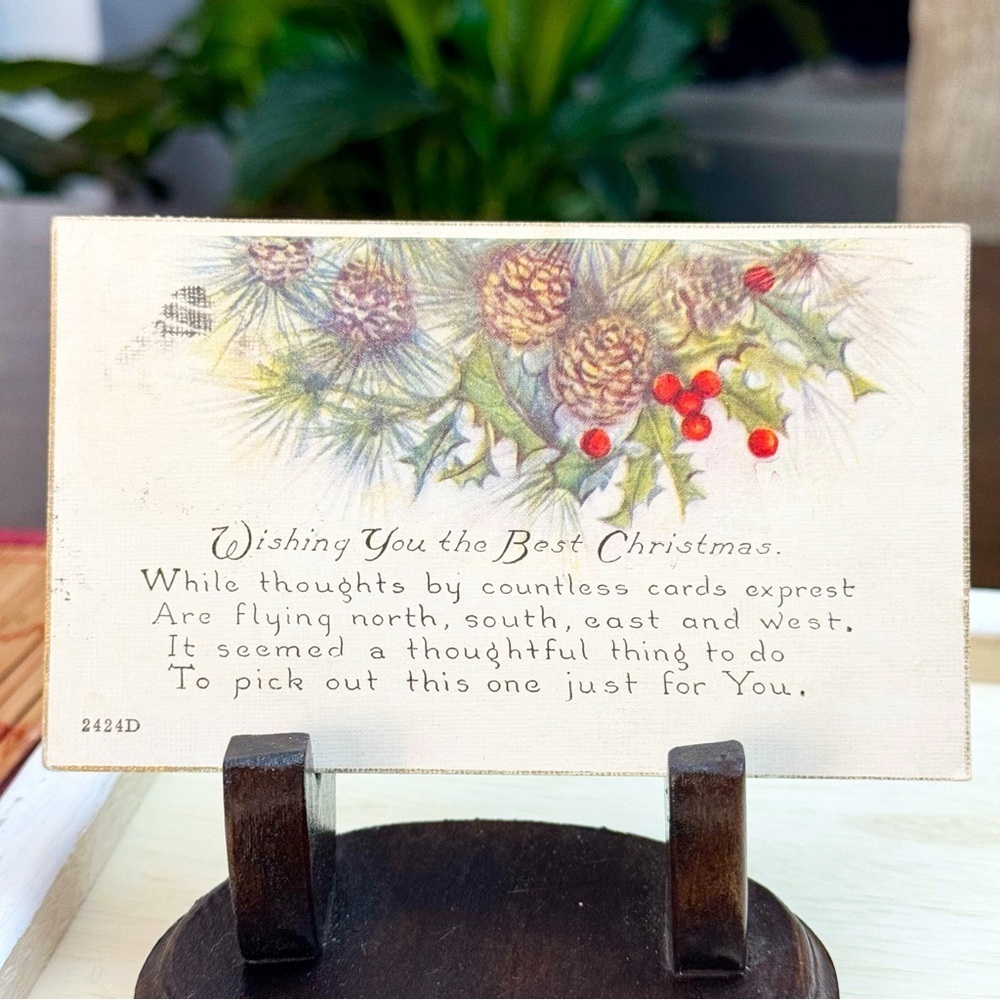 Wishing You the Best Christmas.
While thoughts by countless cards exprest
Are flying north, south, east and west.
It seemed a thoughtful thing to do
To pick out this one just for You.
2424D